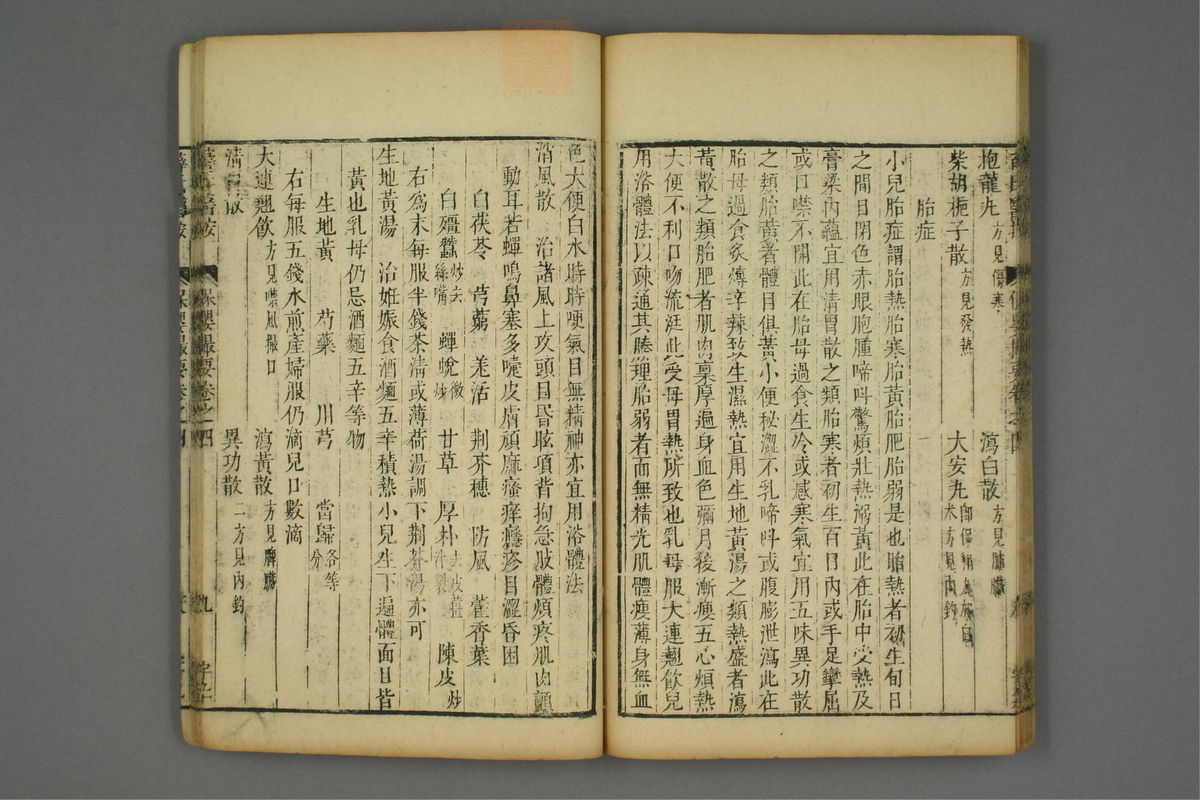 抱龍丸方見傷寒 瀉白散方見肺臟
柴胡梔子散方見發熱 大安丸即保和丸加白术方見內釣
胎症
小兒胎症謂胎熱胎寒胎黃胎肥胎弱是也胎熱者初生旬日
之間目閉色赤眼胞腫啼呌驚煩壯熱溺黃此在胎中受熱及
膏粱內蘊宜用清胃散之類胎寒者初生百日內或手足攣屈
或口噤不開此在胎母過食生冷或感寒氣宜用五味異功散
之類胎黃者體目俱黃小便秘澀不乳啼呌或腹膨泄瀉此在
胎母過食炙煿辛辣致生濕熱宜用生地黃湯之類熱盛者瀉
黃散之類胎肥者肌肉稟厚遍身血色彌月後漸瘦五心煩熱
大便不利口吻流涎此受母胃熱所致也乳母服大連翹飲兒
用浴體法以疎通其腠理胎弱者而無精光肌體瘦薄身無血
色大便白水時時哽氣目無精神亦宜用浴體法
消風散 治諸風上攻頭目昏眩項背拘急肢體煩疼肌肉顫
動耳若蟬鳴鼻塞多嚏皮膚頑麻瘙痒癮疹目澀昏困
白茯苓 芎藭 羌活 荆芥穗 防風 藿香葉
白殭蠶炒去絲嘴 蟬蛻微炒 甘草 厚朴去皮薑汁製 陳皮炒
右爲末每服半錢茶清或薄荷湯調下荆芥湯亦可
生地黃湯 治妊娠食酒麵五辛積熱小兒生下遍體面目皆
黃也乳母仍忌酒麵五辛等物
生地黃 芍藥 川芎 當歸各等分
右每服五錢水煎產婦服仍滴兒口數滴
大連翹飲方見噤風撮口 瀉黃散方見脾臟
清胃散 異功散二方見內釣
薛氏醫按 保嬰撮要卷之四 九